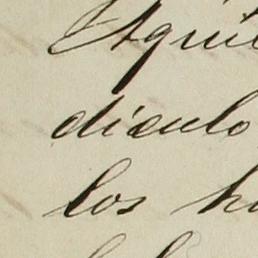 Aquil
diculo
los h